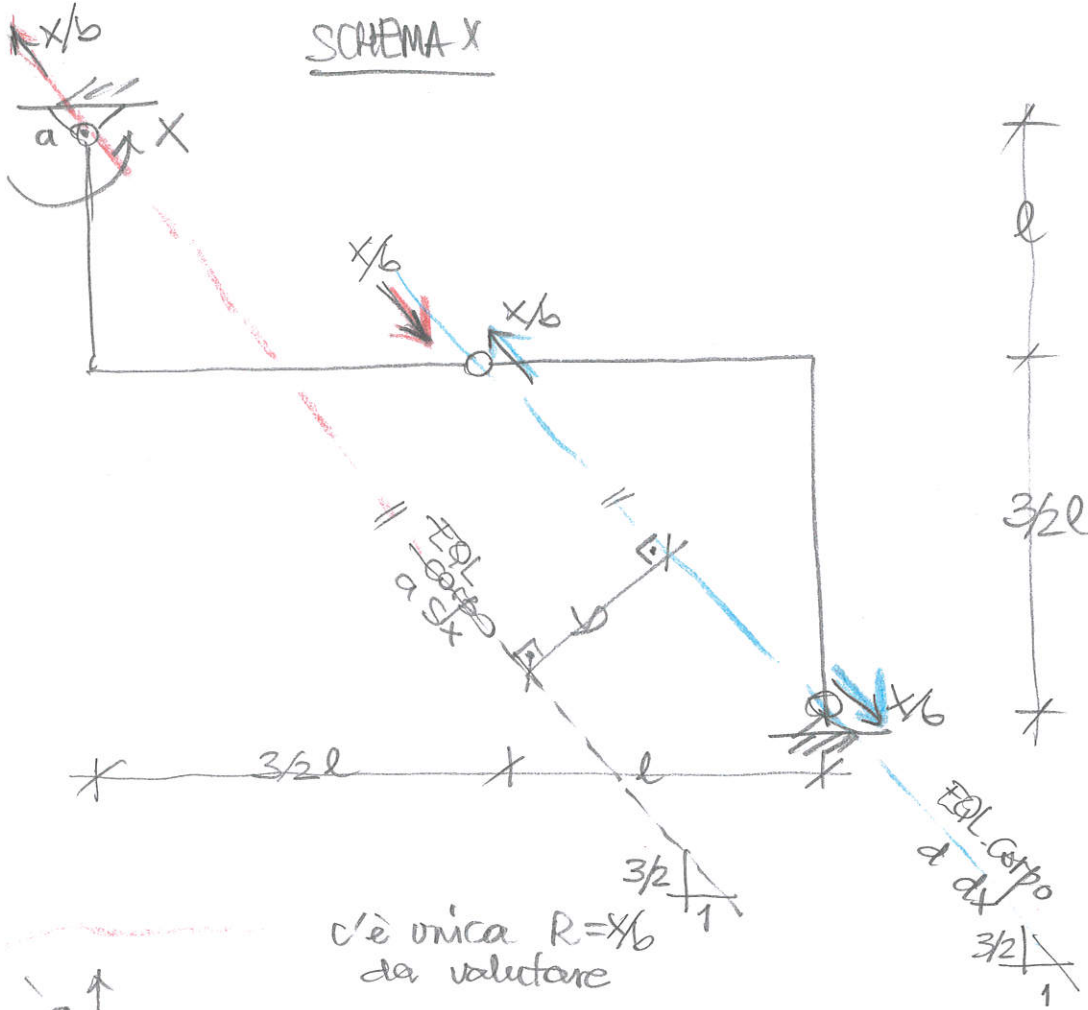 SCHEMA X
X/b
a
X
l
X/b
X/b
3/2l
EQL
corpo
a Sx
b
X/b
3/2l
l
EQL. Corpo
a dx
3/2
1
3/2
1
c'è unica R=X/b
da valutare